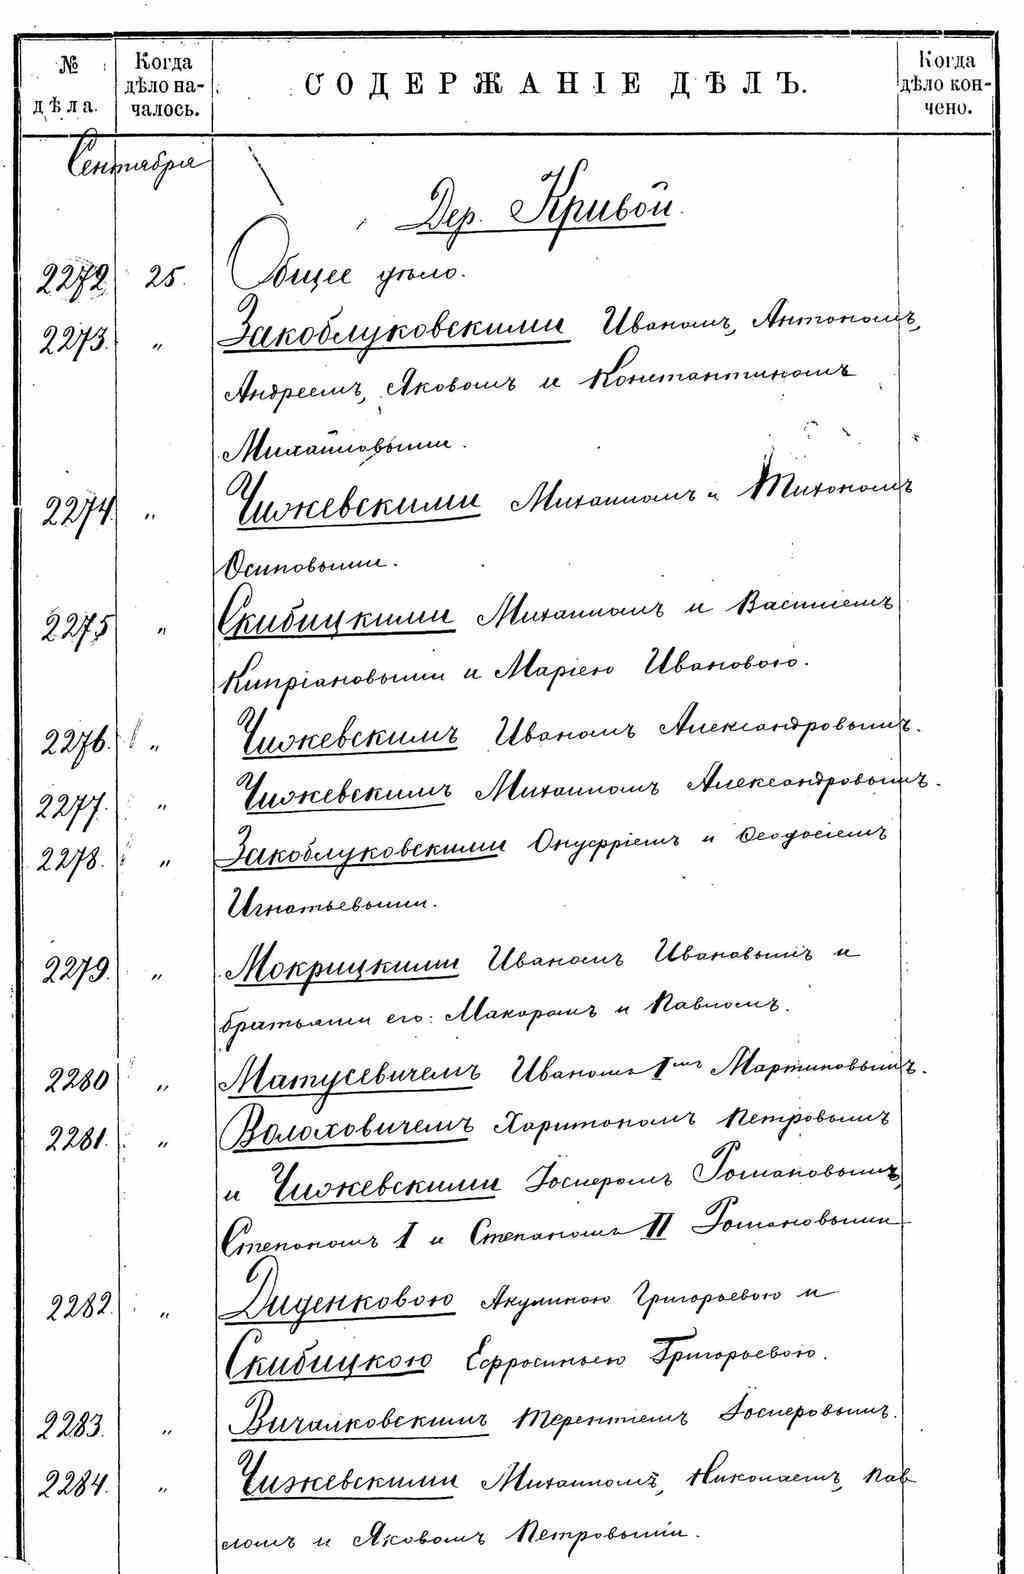 № дѣла.
Когда дѣло на-
чалось.
СОДЕРЖАНІЕ ДѢЛЪ.
Когда дѣло кон-
чено.
Сентября
Дер. Кривой.
2272 25. Общее дѣло.
2273. " Закоблуковскими Иваномъ, Антономъ,
Андреемъ, Яковомъ и Константиномъ
Михайловыми.
2274. " Чижевскими Михаиломъ и Тихономъ
Осиповыми.
2275 " Скибицкими Михаиломъ и Василіемъ
Кипріановыми и Маріею Ивановою.
2276. " Чижевскимъ Иваномъ Александровымъ.
2277. " Чижевскимъ Михаиломъ Александровымъ.
2278. " Закоблуковскими Онуфріемъ и Ѳеодосіемъ
Игнатьевыми.
2279. " Мокрицкими Иваномъ Ивановымъ и
братьями его: Макаромъ и Павломъ.
2280 " Матусевичемъ Иваномъ Iмъ Мартиновымъ.
2281. " Волоховичемъ Харитономъ Петровымъ
и Чижевскими Іосифомъ Романовымъ,
Степаномъ I и Степаномъ II Романовыми
2282. " Диденковою Акулиною Григорьевою и
Скибицкою Ефросиньею Григорьевою.
2283. " Вичалковскимъ Терентіемъ Іосифовымъ.
2284. " Чижевскими Михаиломъ, Николаемъ, Пав
ломъ и Яковомъ Петровыми.